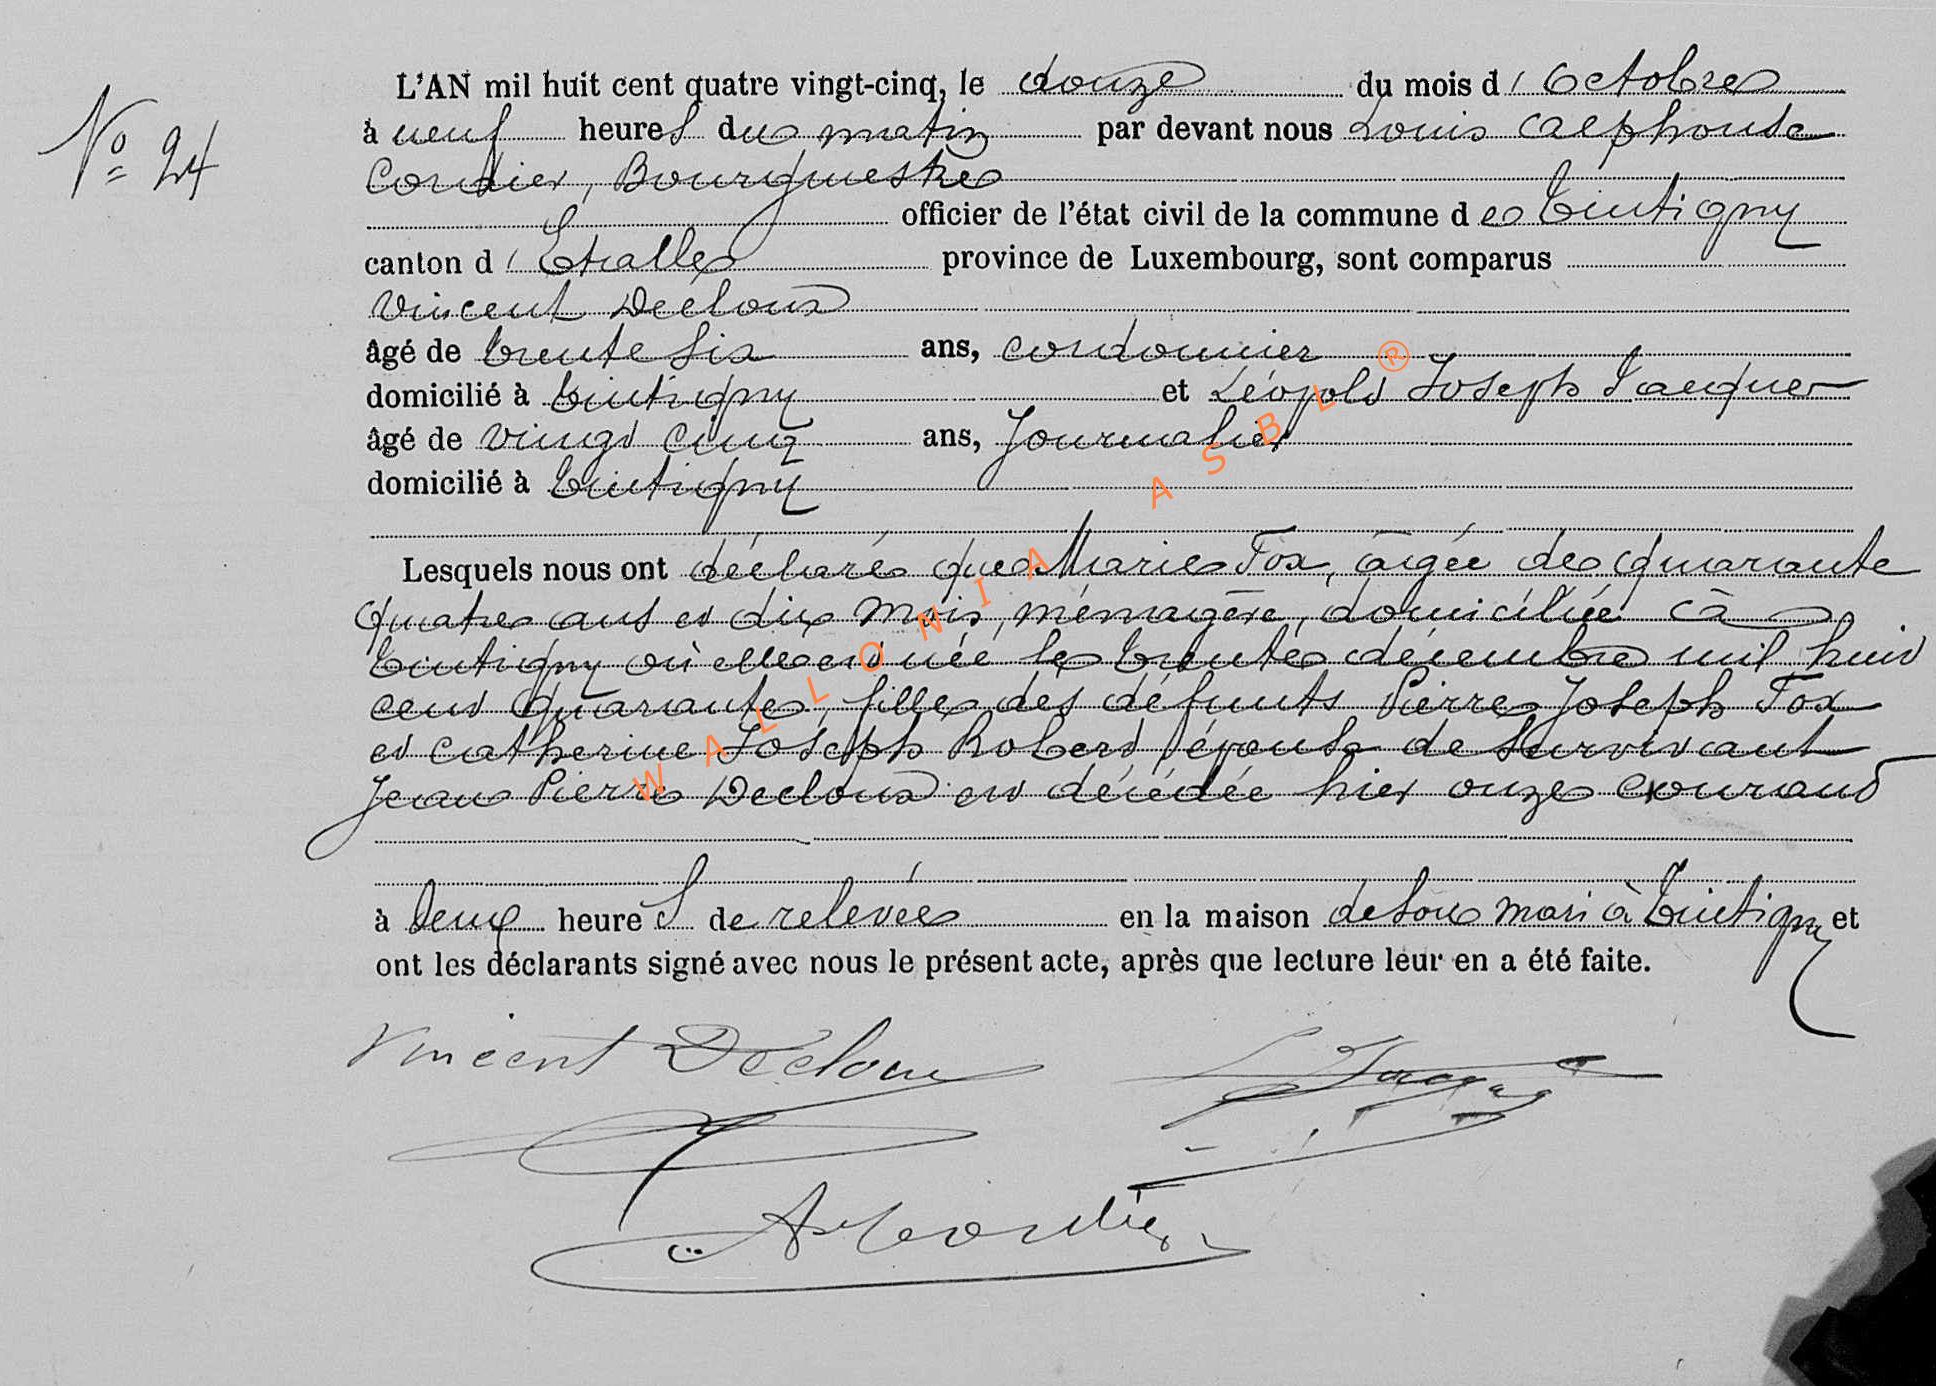 L'AN mil huit cent quatre vingt-cinq, le douze du mois d'Octobre
No 24
à neuf heures du matin par devant nous Louis Alphonse
Cordier, Bourgmestre
officier de l'état civil de la commune de Tintigny
canton d'Etalle province de Luxembourg, sont comparus
Vincent Decloux
âgé de trente six ans, cordonnier
domicilié à Tintigny et Léopold Joseph Jacques
âgé de vingt cinq ans, Journalier
domicilié à Tintigny
Lesquels nous ont déclaré que Marie Fox, âgée de quarante
quatre ans et dix mois, ménagère, domiciliée à
Tintigny où elle est née le trente décembre mil huit
cent quarante, fille des défunts Pierre Joseph Fox
et Catherine Joseph Robert, épouse de survivant
Jean Pierre Decloux est décédée hier onze courant
à deux heures de relevée en la maison de son mari à Tintigny et
ont les déclarants signé avec nous le présent acte, après que lecture leur en a été faite.
Vincent Decloux
L Jacques
A Cordier
WALLONIA ASBL ®